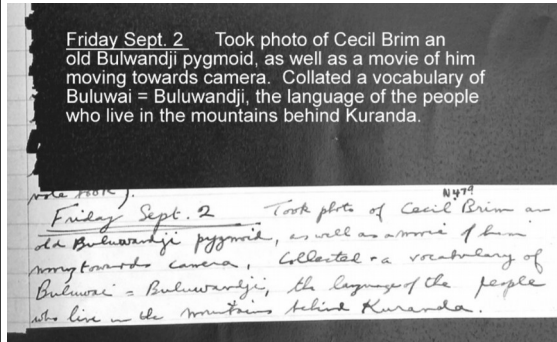 Friday Sept. 2 Took photo of Cecil Brim an
old Bulwandji pygmoid, as well as a movie of him
moving towards camera. Collated a vocabulary of
Buluwai = Buluwandji, the language of the people
who live in the mountains behind Kuranda.
note book).
N479
Friday Sept. 2 Took photo of Cecil Brim an
old Buluwandji pygmoid, as well as a movie of him
moving towards camera, Collected a vocabulary of
Buluwai = Buluwandji, the language of the people
who live in the mountains behind Kuranda.